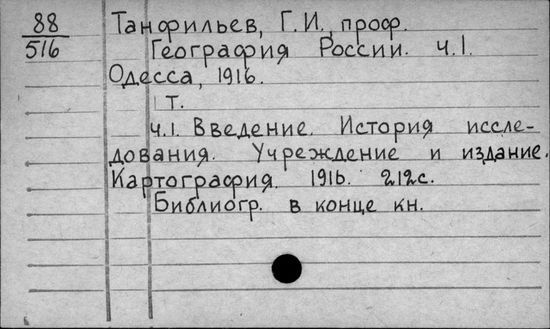 88
516
Танфильев, Г.И., проф.
География России. ч.I.
Одесса, 1916.
т.
ч.I. Введение. История иссле-
дования. Учреждение и издание.
Картография. 1916. 212с.
Библиогр. в конце кн.